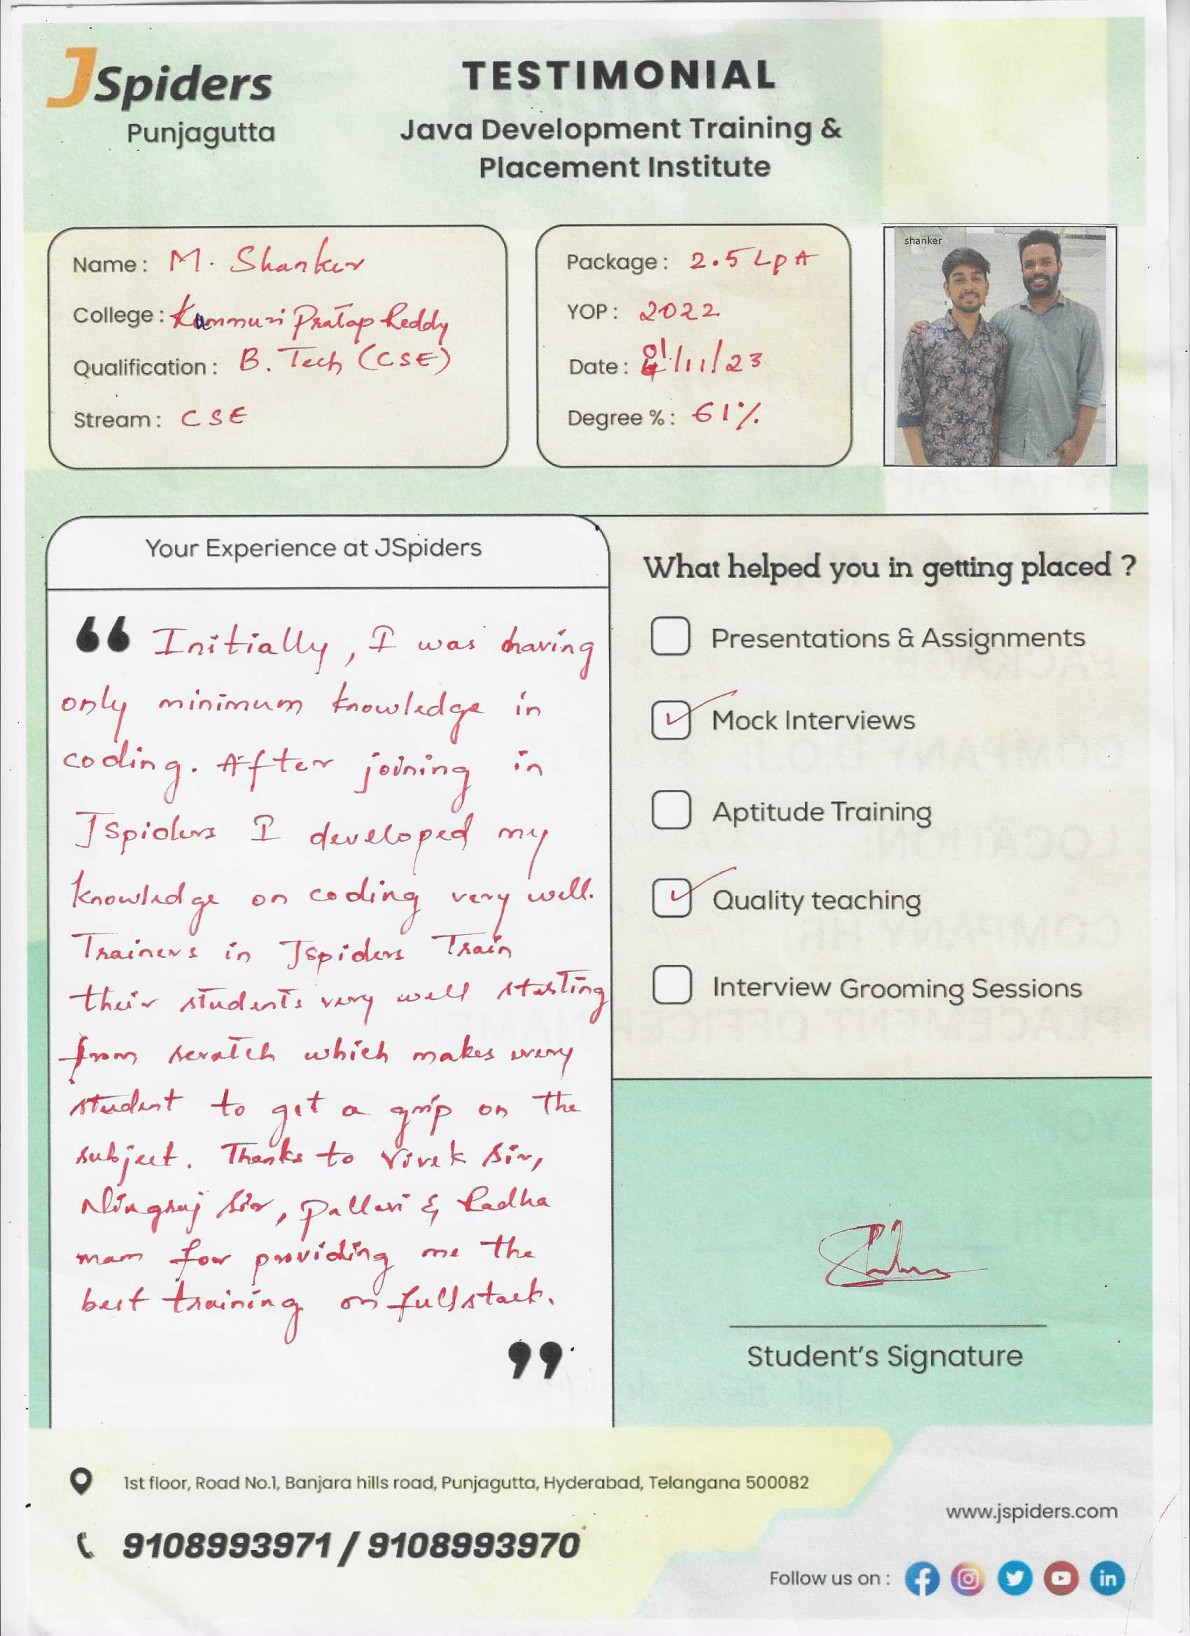 JSpiders
Punjagutta
TESTIMONIAL
Java Development Training &
Placement Institute
Name : M. Shanker
College : Kommuri Pratap Reddy
Qualification : B. Tech (CSE)
Stream : CSE
Package : 2.5 LPA
YOP : 2022
Date : 01/11/23
Degree % : 61%
shanker
Your Experience at JSpiders
“ Initially, I was having
only minimum knowledge in
coding. After joining in
JSpiders I developed my
knowledge on coding very well.
Trainers in JSpiders Train
their students very well starting
from scratch which makes every
student to get a grip on the
subject. Thanks to Vivek Sir,
Ningraj Sir, Pallavi & Radha
mam for providing me the
best training on fullstack.
”
What helped you in getting placed ?
Presentations & Assignments
Mock Interviews
Aptitude Training
Quality teaching
Interview Grooming Sessions
Student's Signature
1st floor, Road No.1, Banjara hills road, Punjagutta, Hyderabad, Telangana 500082
9108993971 / 9108993970
www.jspiders.com
Follow us on :